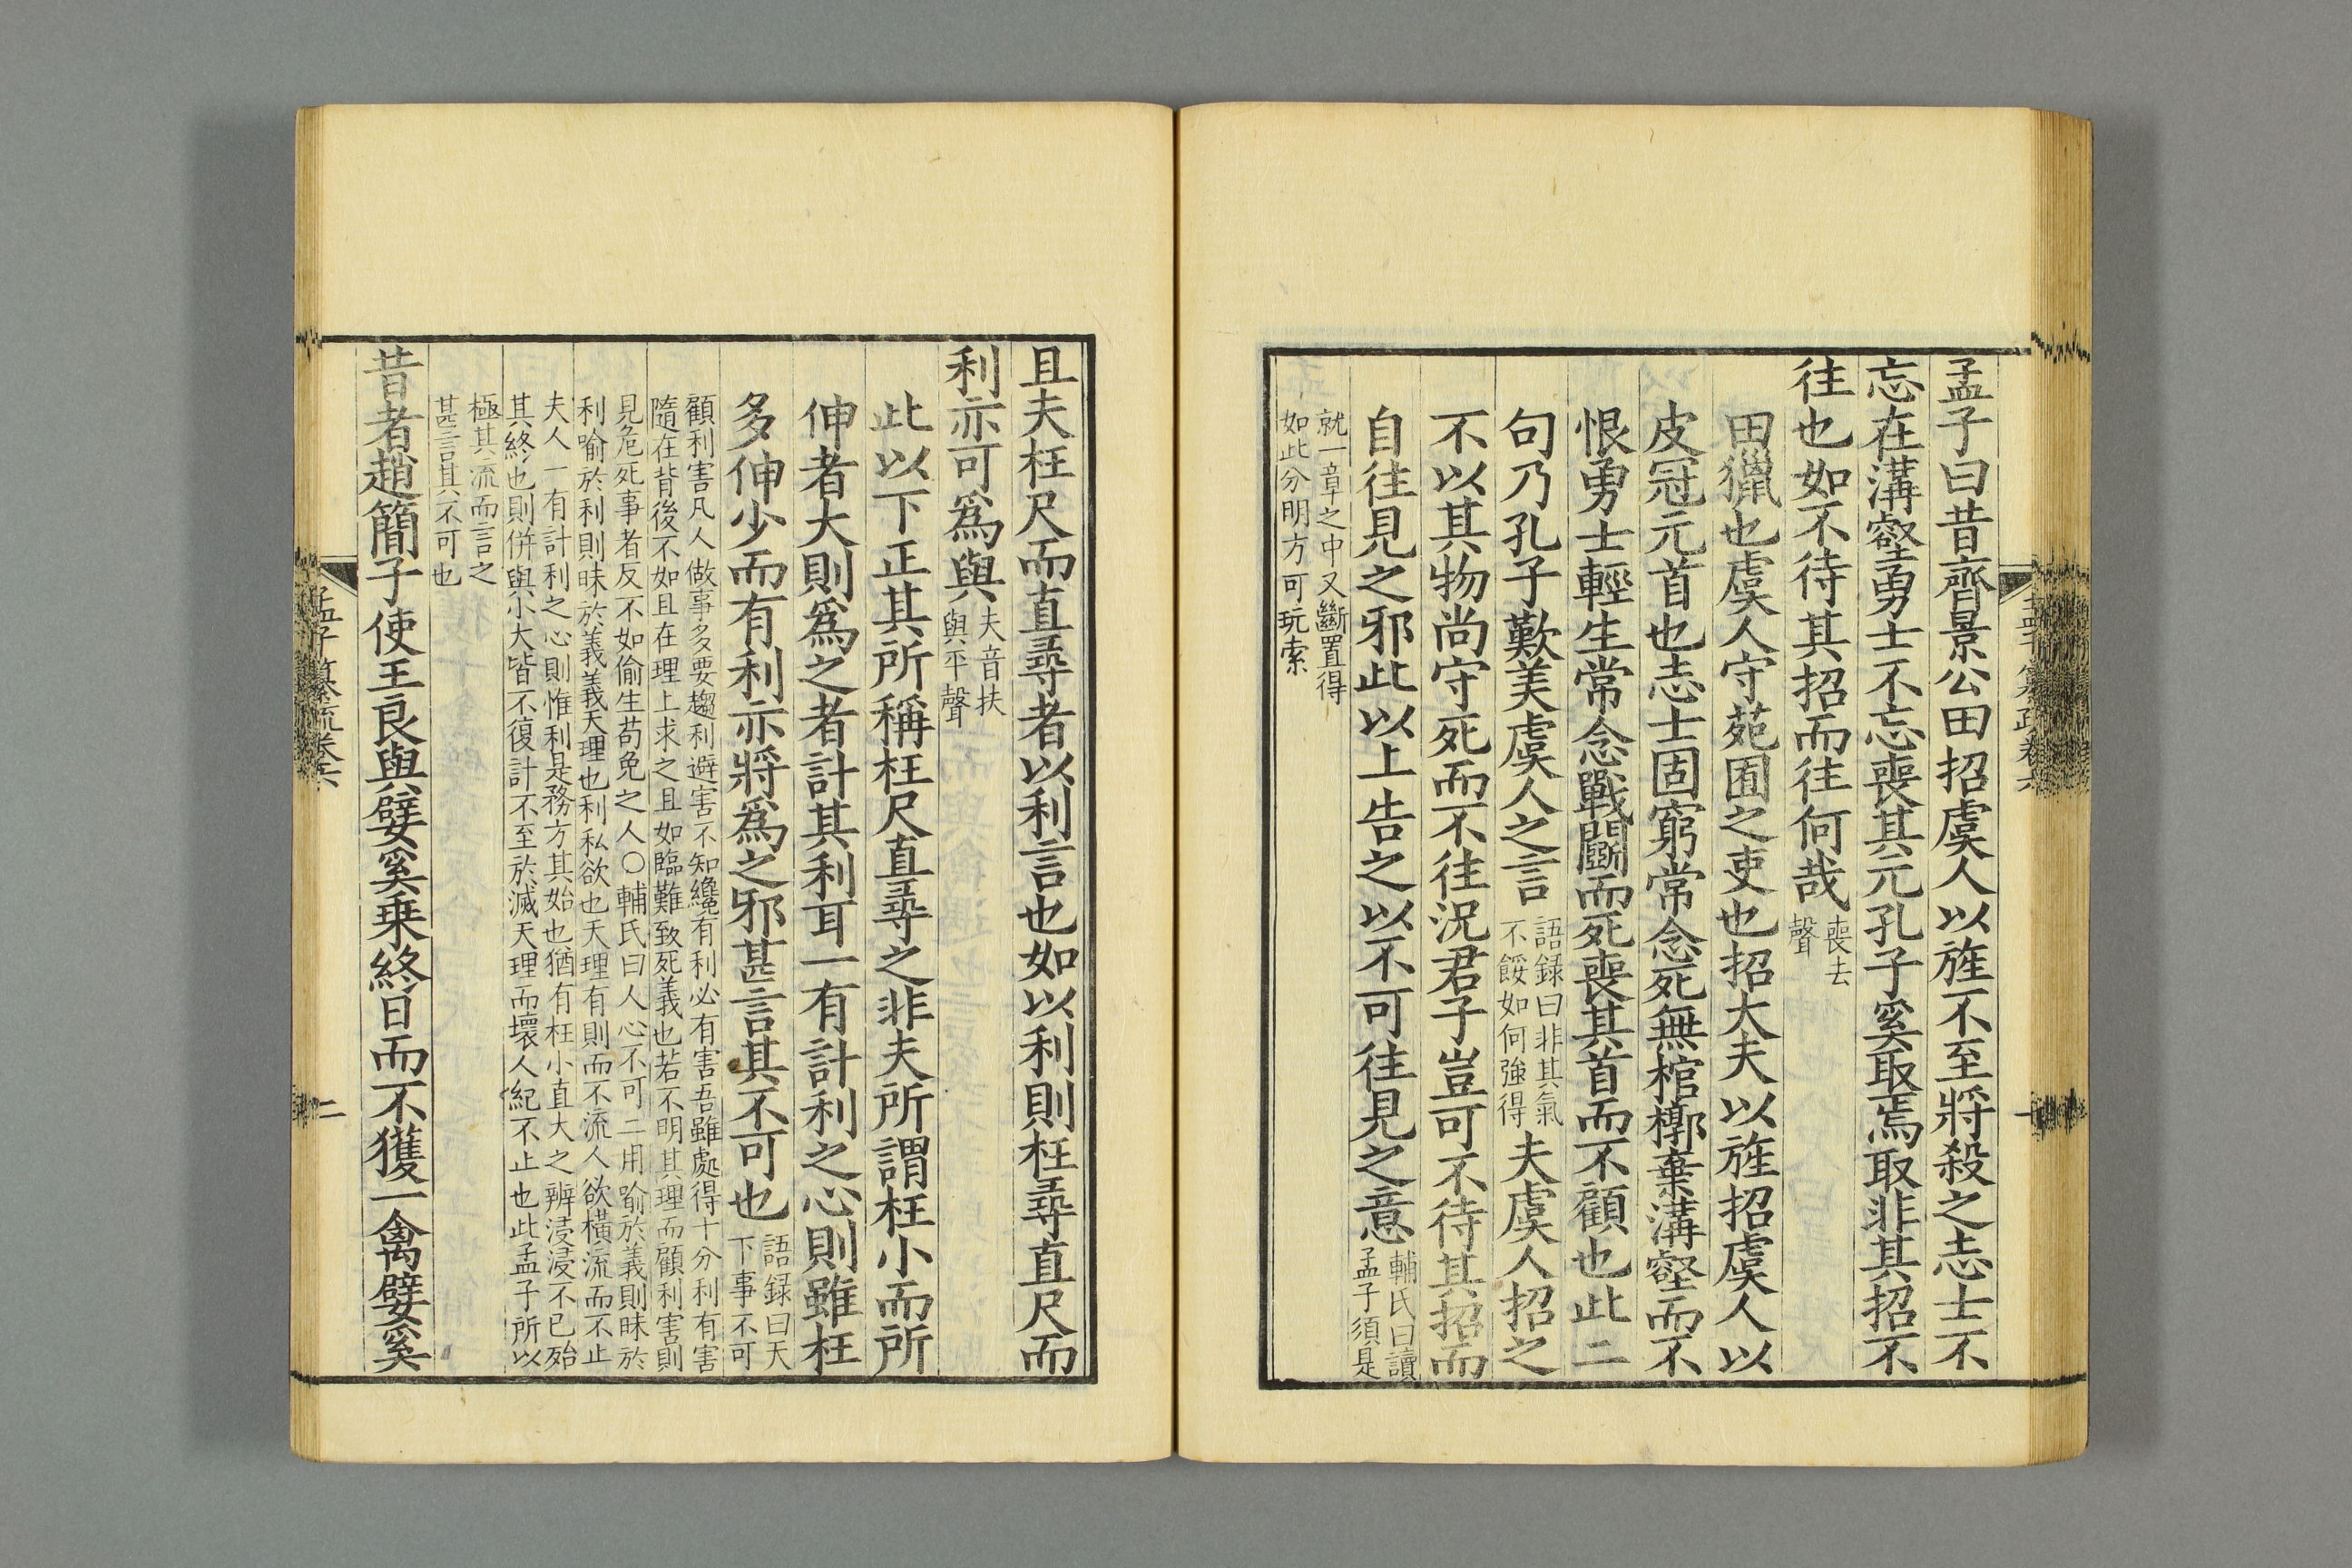 孟子曰昔齊景公田招虞人以旌不至將殺之志士不
忘在溝壑勇士不忘喪其元孔子奚取焉取非其招不
往也如不待其招而往何哉
喪去
聲
田獵也虞人守苑囿之吏也招大夫以旌招虞人以
皮冠元首也志士固窮常念死無棺槨棄溝壑而不
恨勇士輕生常念戰鬭而死喪其首而不顧也此二
句乃孔子歎美虞人之言
語録曰非其氣
不餒如何強得
夫虞人招之
不以其物尚守死而不往況君子豈可不待其招而
自往見之邪此以上告之以不可往見之意
輔氏曰讀
孟子須是
就一章之中又斷置得
如此分明方可玩索
且夫枉尺而直尋者以利言也如以利則枉尋直尺而
利亦可爲與
夫音扶
與平聲
此以下正其所稱枉尺直尋之非夫所謂枉小而所
伸者大則爲之者計其利耳一有計利之心則雖枉
多伸少而有利亦將爲之邪甚言其不可也
語録曰天
下事不可
顧利害凡人做事多要趨利避害不知纔有利必有害吾雖處得十分利有害
隨在背後不如且在理上求之且如臨難致死義也若不明其理而顧利害則
見危死事者反不如偷生苟免之人○輔氏曰人心不可二用喻於義則昧於
利喻於利則昧於義義天理也利私欲也天理有則而不流人欲橫流而不止
夫人一有計利之心則惟利是務方其始也猶有枉小直大之辨浸浸不已殆
其終也則併與小大皆不復計不至於滅天理而壞人紀不止也此孟子所以
極其流而言之
甚言其不可也
昔者趙簡子使王良與嬖奚乗終日而不獲一禽嬖奚
孟子纂疏卷六
二